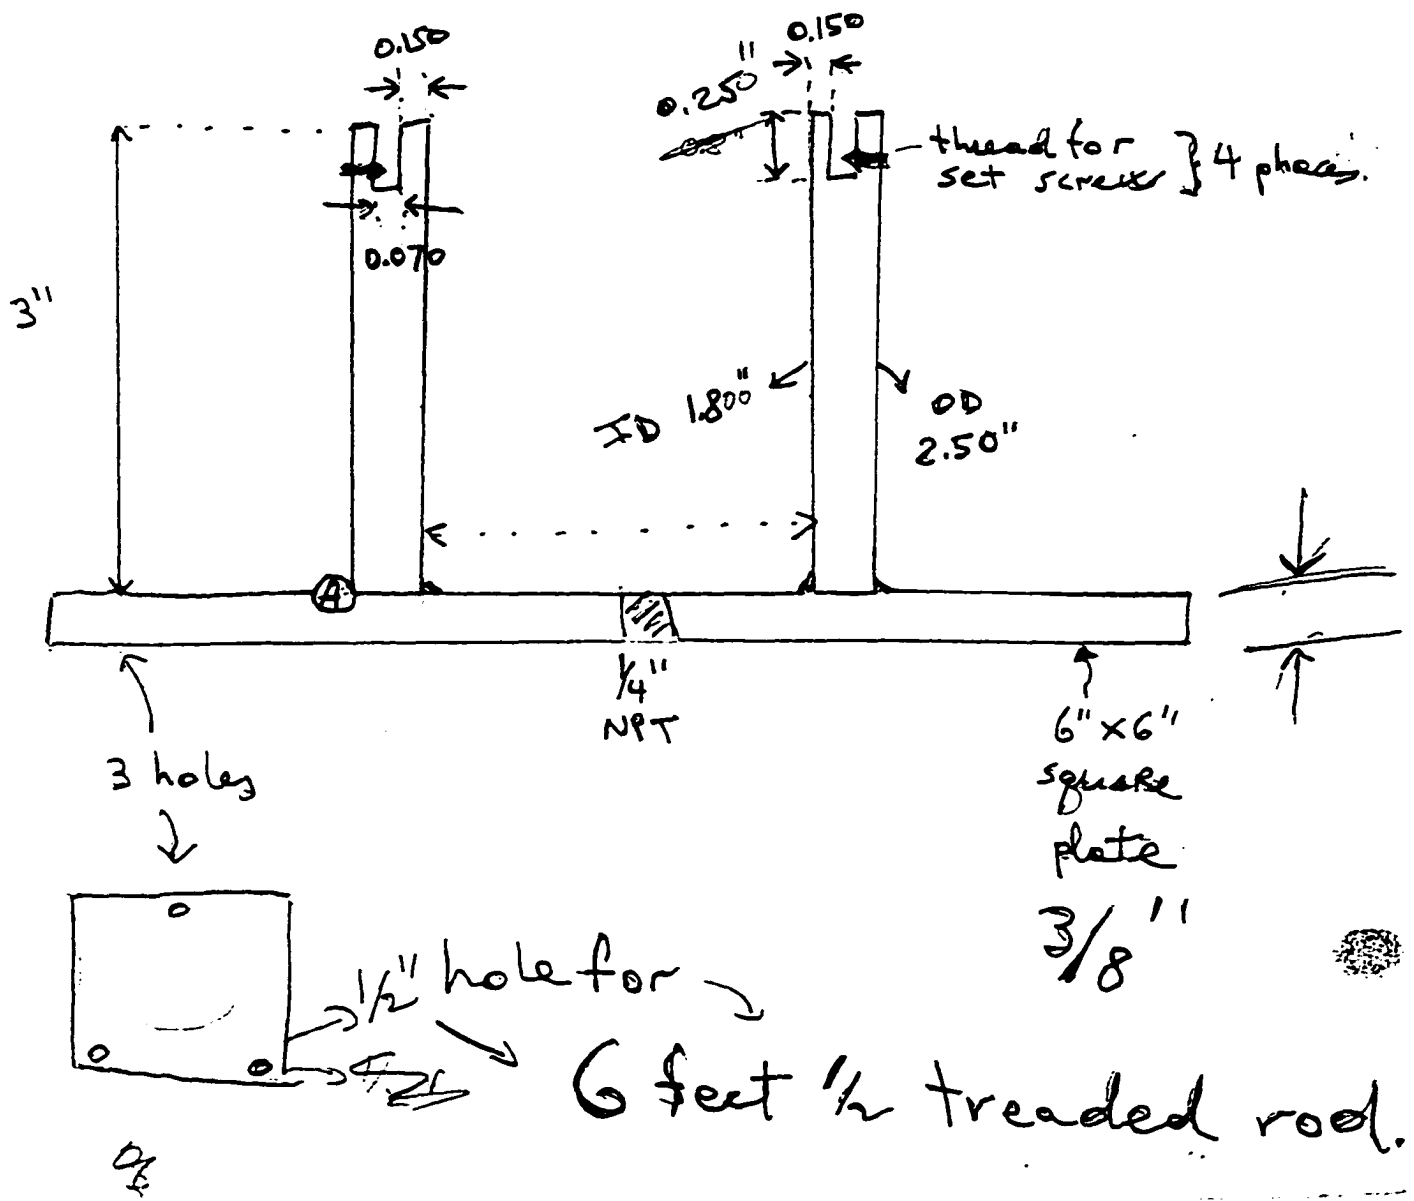 0.150
0.150
0.250"
thread for
set screws } 4 places.
0.070
3"
ID 1.800"
OD
2.50"
A
1/4"
NPT
3 holes
6" x 6"
square
plate
3/8"
1/2" hole for
6 feet 1/2 treaded rod.